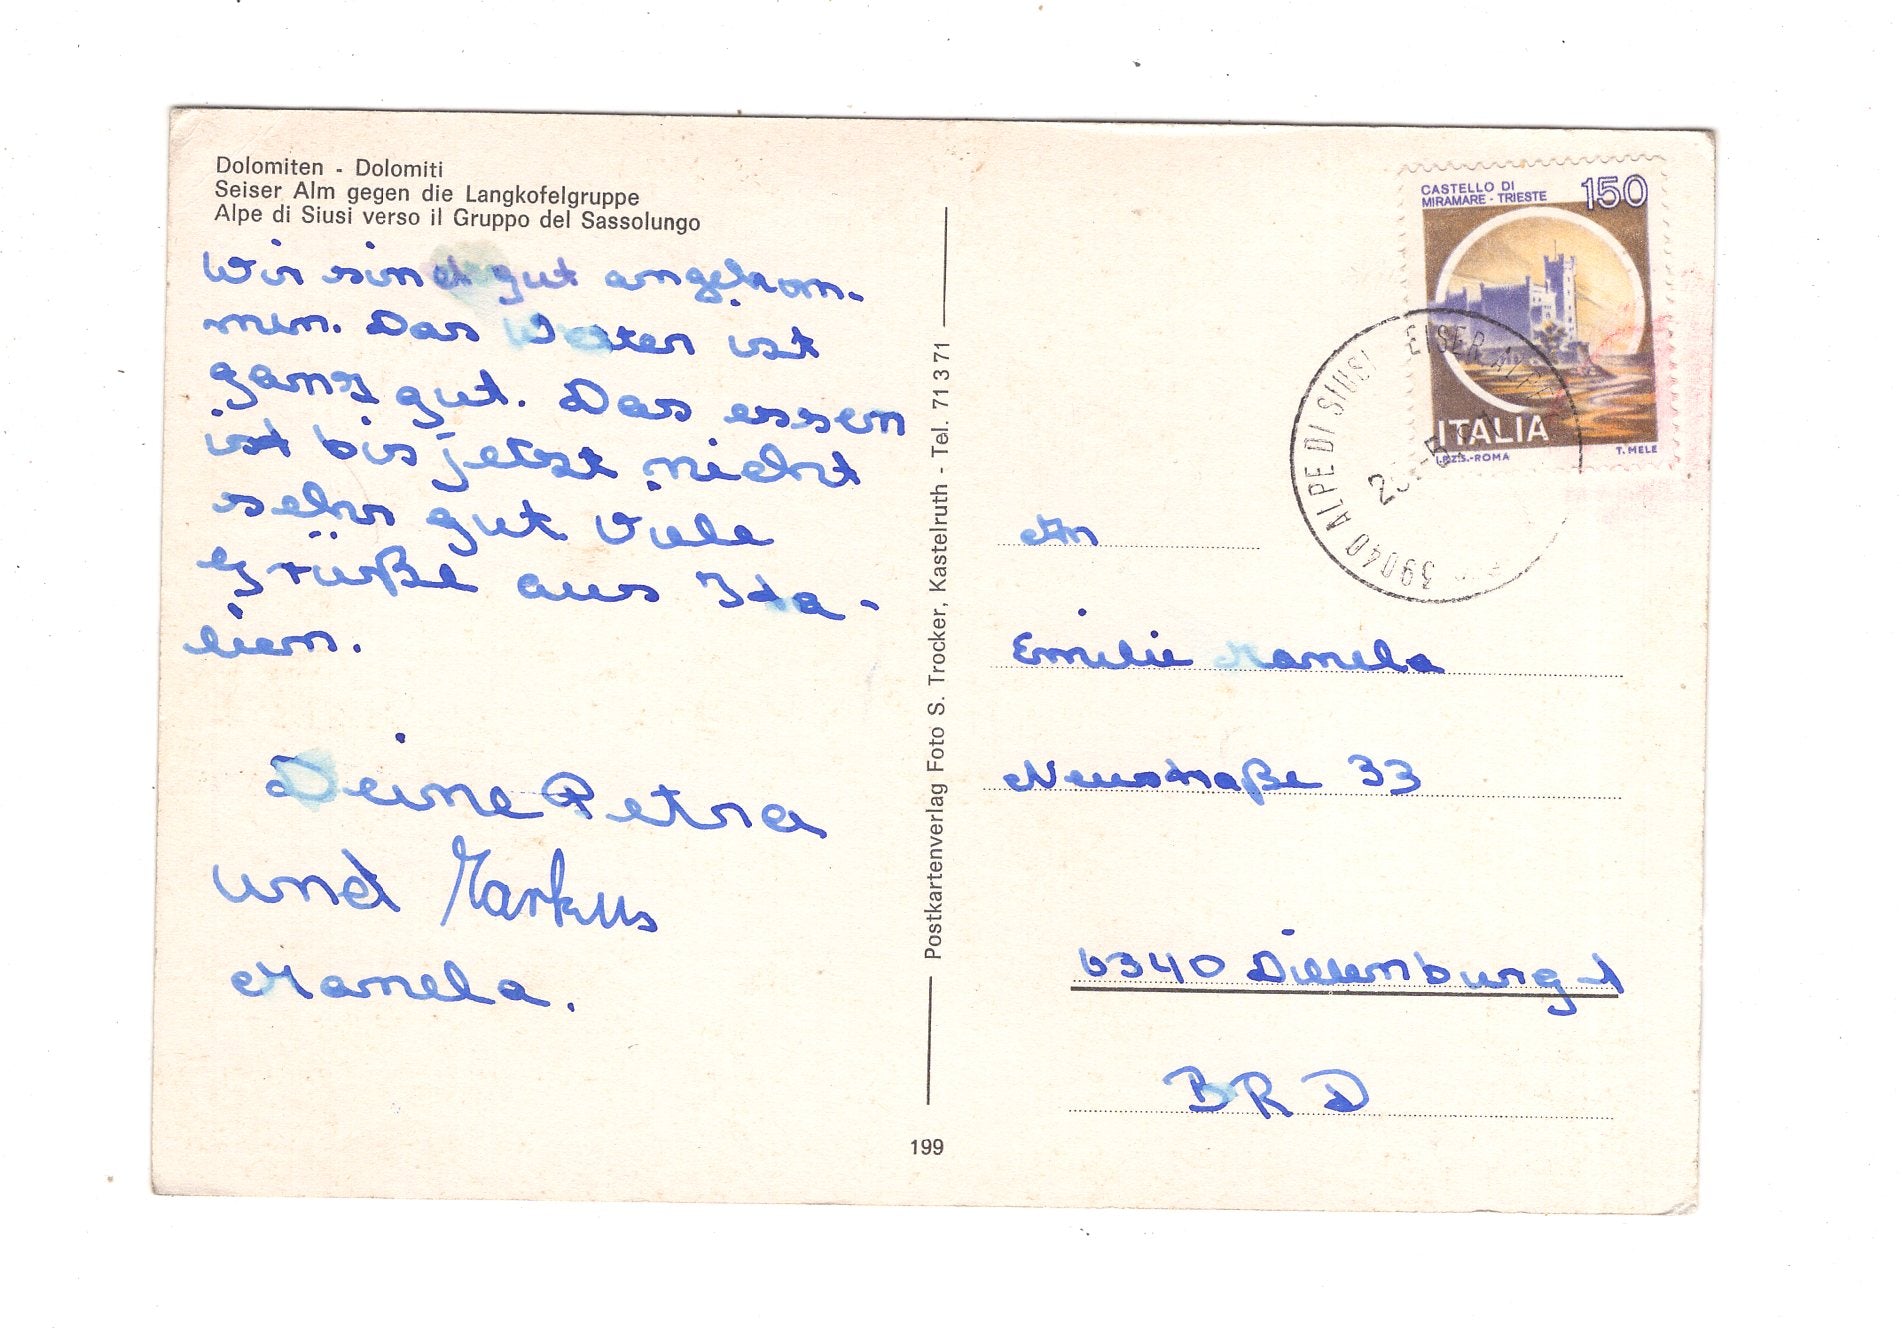 Dolomiten - Dolomiti
Seiser Alm gegen die Langkofelgruppe
Alpe di Siusi verso il Gruppo del Sassolungo
Wir sind gut angekom-
men. Das Wetter ist
ganz gut. Das essen
ist bis jetzt nicht
sehr gut Viele
Grüße aus Ita-
lien.
Deine Petra
und Markus
Manela.
Postkartenverlag Foto S. Trocker, Kastelruth - Tel. 71 3 71
199
CASTELLO DI
MIRAMARE - TRIESTE
150
ITALIA
I.P.Z.S.-ROMA
T. MELE
39040 ALPE DI SIUSI
An
Emilie Manela
Neustraße 33
6340 Dillenburg-1
BRD